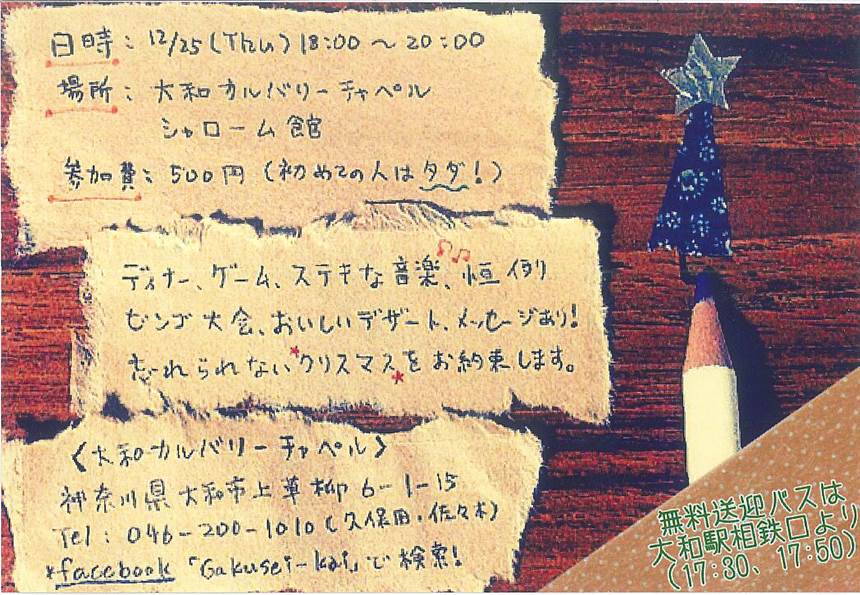 日時：12/25(Thu) 18:00～20:00
場所：大和カルバリーチャペル
シャローム館
参加費：500円（初めての人はタダ！）
ディナー、ゲーム、ステキな音楽、恒例
ビンゴ大会、おいしいデザート、メッセージあり！
忘れられない*クリスマス*をお約束します。
〈大和カルバリーチャペル〉
神奈川県大和市上草柳6-1-15
Tel：046-200-1010（久保田・佐々木）
*facebook「Gakusei-kai」で検索！
無料送迎バスは
大和駅相鉄口より
（17:30、17:50）